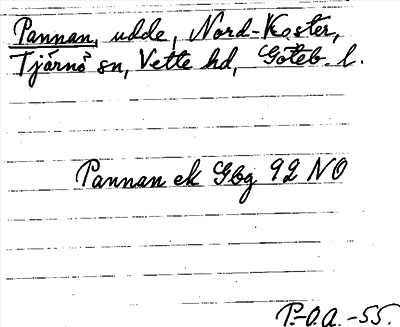 Pannan, udde, Nord-Koster,
Tjärnö sn, Vette hd, Göteb. l.
Pannan ek Gbg 92 NO
P.-O.A. -55.